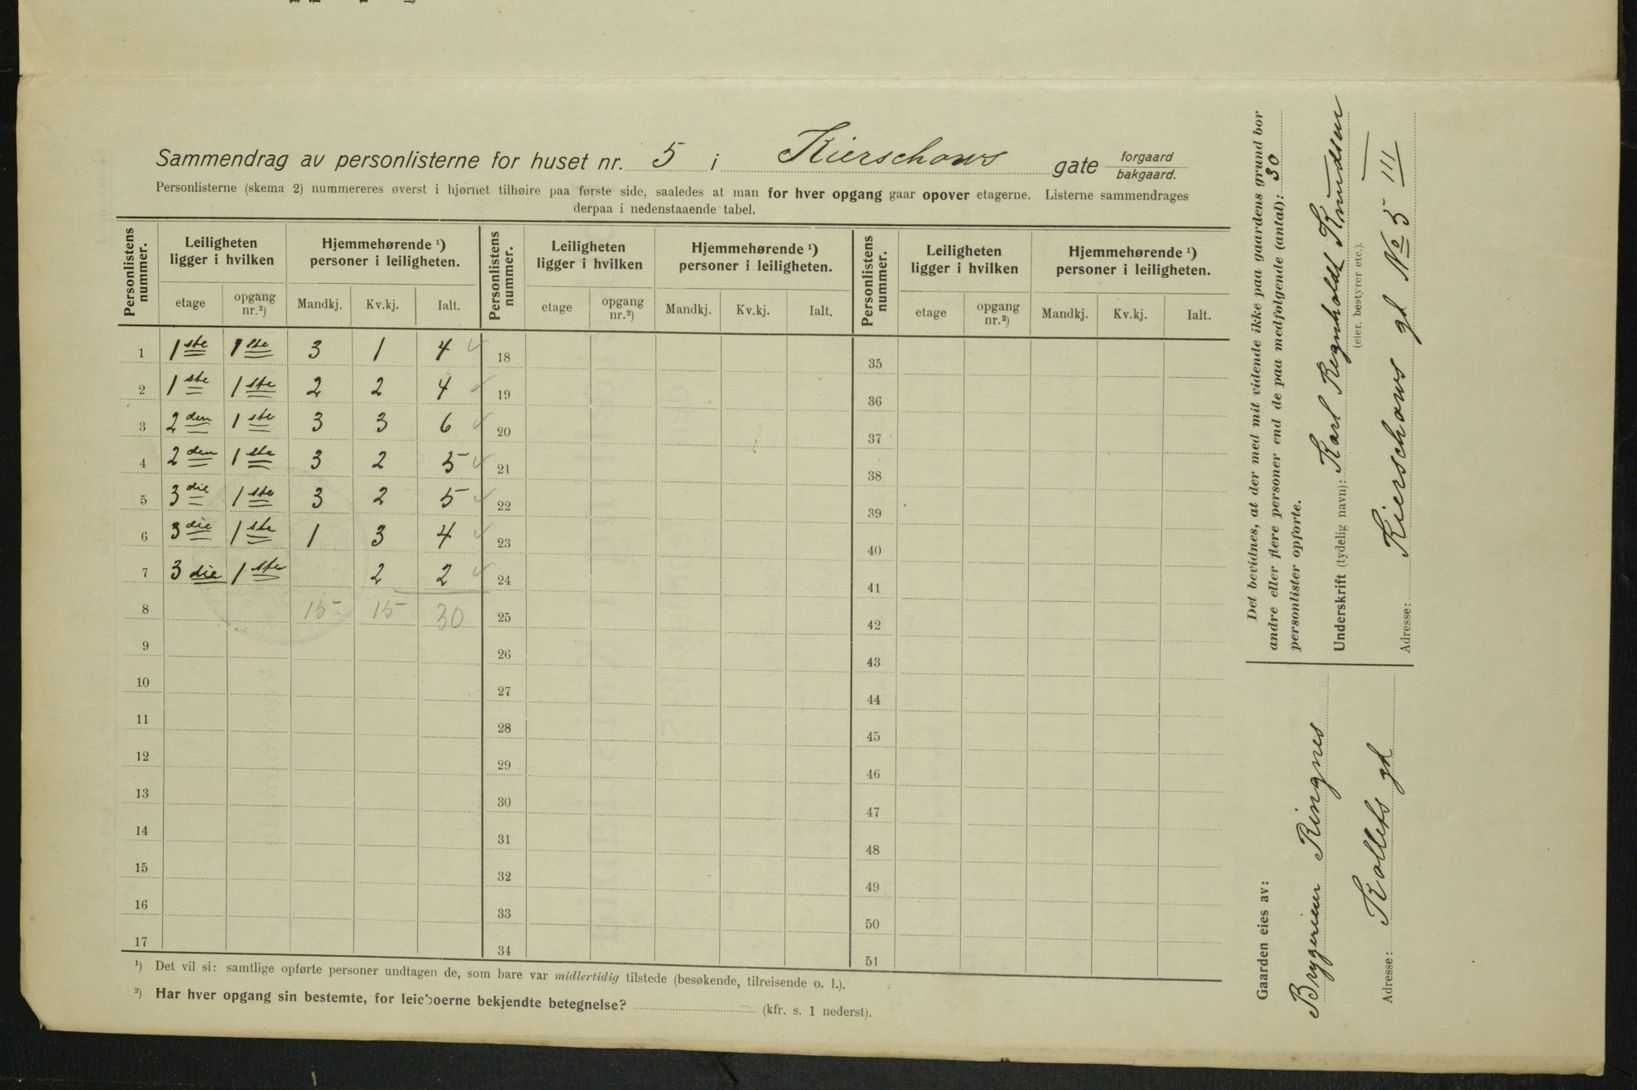 Sammendrag av personlisterne for huset nr. 5 i Kierschows gate forgaard bakgaard.
Personlisterne (skema 2) nummereres øverst i hjørnet tilhøire paa første side, saaledes at man for hver opgang gaar opover etagerne. Listerne sammendrages
derpaa i nedenstaaende tabel.
Personlistens nummer. Leiligheten ligger i hvilken Hjemmehørende ¹) personer i leiligheten. Personlistens nummer. Leiligheten ligger i hvilken Hjemmehørende ¹) personer i leiligheten. Personlistens nummer. Leiligheten ligger i hvilken Hjemmehørende ¹) personer i leiligheten.
etage opgang nr.²) Mandkj. Kv.kj. Ialt. etage opgang nr.²) Mandkj. Kv.kj. Ialt. etage opgang nr.²) Mandkj. Kv.kj. Ialt.
1 1ste 1ste 3 1 4 ✓ 18 35
2 1ste 1ste 2 2 4 ✓ 19 36
3 2den 1ste 3 3 6 ✓ 20 37
4 2den 1ste 3 2 5 ✓ 21 38
5 3die 1ste 3 2 5 ✓ 22 39
6 3die 1ste 1 3 4 ✓ 23 40
7 3die 1ste 2 2 ✓ 24 41
8 15 15 30 25 42
9 26 43
10 27 44
11 28 45
12 29 46
13 30 47
14 31 48
15 32 49
16 33 50
17 34 51
¹) Det vil si: samtlige opførte personer undtagen de, som bare var midlertidig tilstede (besøkende, tilreisende o. l.).
²) Har hver opgang sin bestemte, for leieboerne bekjendte betegnelse? (kfr. s. 1 nederst).
Det bevidnes, at der med mit vidende ikke paa gaardens grund bor
andre eller flere personer end de paa medfølgende (antal): 30
personlister opførte.
Underskrift (tydelig navn): Karl Regnholdt Knudsen
(eier, bestyrer etc.).
Adresse: Kierschows gt No 5 III
Gaarden eies av:
Bryggerieier Ringnes
Adresse: Kolletts gt